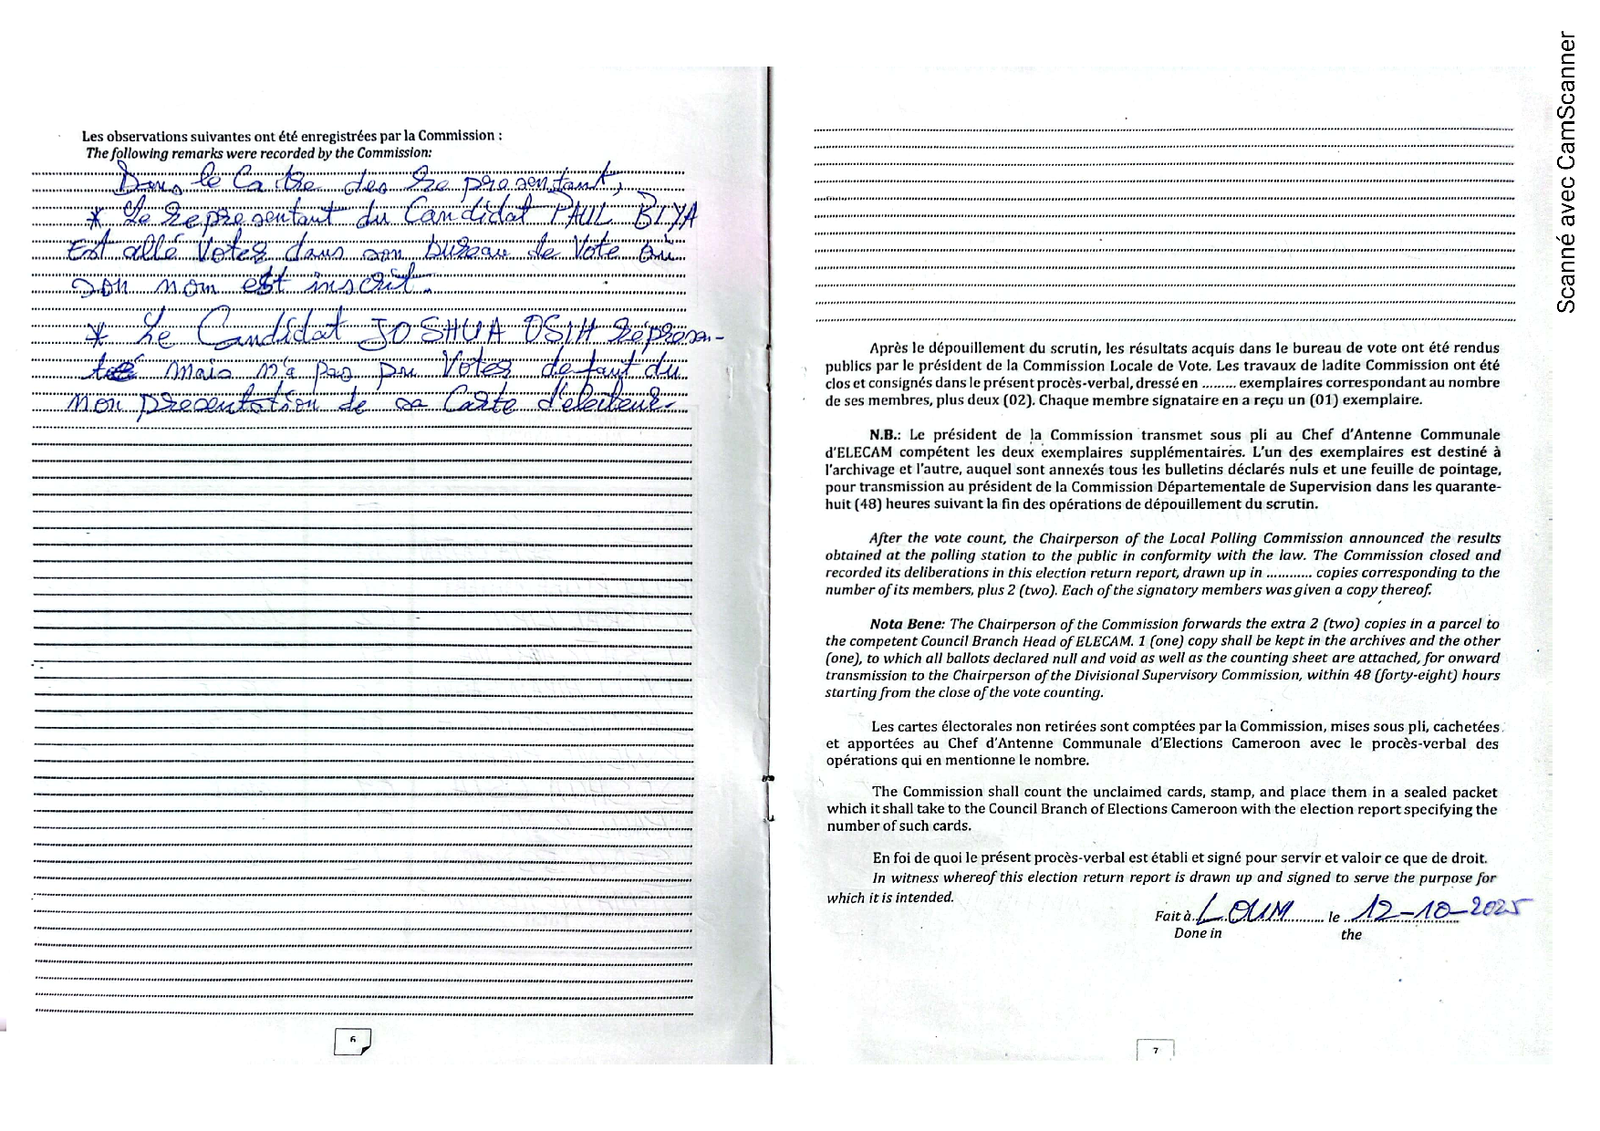 Les observations suivantes ont été enregistrées par la Commission :
The following remarks were recorded by the Commission:
Dans le Cadre des représentant,
* Le représentant du Candidat PAUL BIYA
Est allé Voter dans son bureau de Vote où
son nom est inscrit.
* Le Candidat JOSHUA OSIH représen-
té mais n'a pas pu Voter defaut du
non presentation de sa Carte d'électeur.
6
Après le dépouillement du scrutin, les résultats acquis dans le bureau de vote ont été rendus
publics par le président de la Commission Locale de Vote. Les travaux de ladite Commission ont été
clos et consignés dans le présent procès-verbal, dressé en ......... exemplaires correspondant au nombre
de ses membres, plus deux (02). Chaque membre signataire en a reçu un (01) exemplaire.
N.B.: Le président de la Commission transmet sous pli au Chef d'Antenne Communale
d'ELECAM compétent les deux exemplaires supplémentaires. L'un des exemplaires est destiné à
l'archivage et l'autre, auquel sont annexés tous les bulletins déclarés nuls et une feuille de pointage,
pour transmission au président de la Commission Départementale de Supervision dans les quarante-
huit (48) heures suivant la fin des opérations de dépouillement du scrutin.
After the vote count, the Chairperson of the Local Polling Commission announced the results
obtained at the polling station to the public in conformity with the law. The Commission closed and
recorded its deliberations in this election return report, drawn up in ........... copies corresponding to the
number of its members, plus 2 (two). Each of the signatory members was given a copy thereof.
Nota Bene: The Chairperson of the Commission forwards the extra 2 (two) copies in a parcel to
the competent Council Branch Head of ELECAM. 1 (one) copy shall be kept in the archives and the other
(one), to which all ballots declared null and void as well as the counting sheet are attached, for onward
transmission to the Chairperson of the Divisional Supervisory Commission, within 48 (forty-eight) hours
starting from the close of the vote counting.
Les cartes électorales non retirées sont comptées par la Commission, mises sous pli, cachetées
et apportées au Chef d'Antenne Communale d'Elections Cameroon avec le procès-verbal des
opérations qui en mentionne le nombre.
The Commission shall count the unclaimed cards, stamp, and place them in a sealed packet
which it shall take to the Council Branch of Elections Cameroon with the election report specifying the
number of such cards.
En foi de quoi le présent procès-verbal est établi et signé pour servir et valoir ce que de droit.
In witness whereof this election return report is drawn up and signed to serve the purpose for
which it is intended.
Fait à LOUM le 12-10-2025
Done in the
7
Scanné avec CamScanner